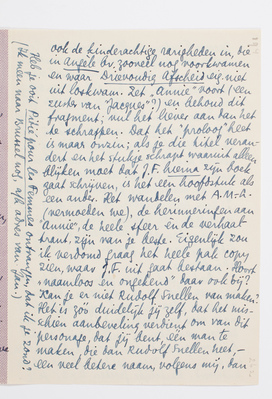 ook de kinderachtige rarigheden in, die
in Angèle bv. zooveel nog voorkwamen
en waar Drievoudig Afscheid nog niet
uit loskwam. Zet „Annie" voort (een
zuster van "Jacques"?) en behoud dit
fragment; vul het liever aan dan het
te schrappen. Dat het "proloog" heet
is maar onzin; als je die titel veran-
dert en het stukje schrapt waaruit alleen
blijken moet dat J.F. hierna zijn boek
gaat schrijven, is het een hoofdstuk als
een ander. Het wandelen met A.M.A.
(vermoeden we), de herinneringen aan
"Annie", de heele sfeer en de verhaal-
trant, zijn van je beste. Eigenlijk zou
ik verdomd graag het heele pak copy
zien, waar J.F. uit gaat bestaan. Hoort
"naamloos en ongekend" daar ook bij?
Kan je er niet Rudolf Snellen van maken?
Het is zoo duidelijk jij zelf, dat het mis-
schien aanbeveling verdient om van dit
personage, dat jij bent, een man te
maken die dan Rudolf Snellen heet, —
een veel betere naam, volgens mij, dan
Heb je ooit Pitié pour les Femmes ontvangen, dat ik je zond?
(Ik meen naar Brussel nog, afz. adres van Jan.)